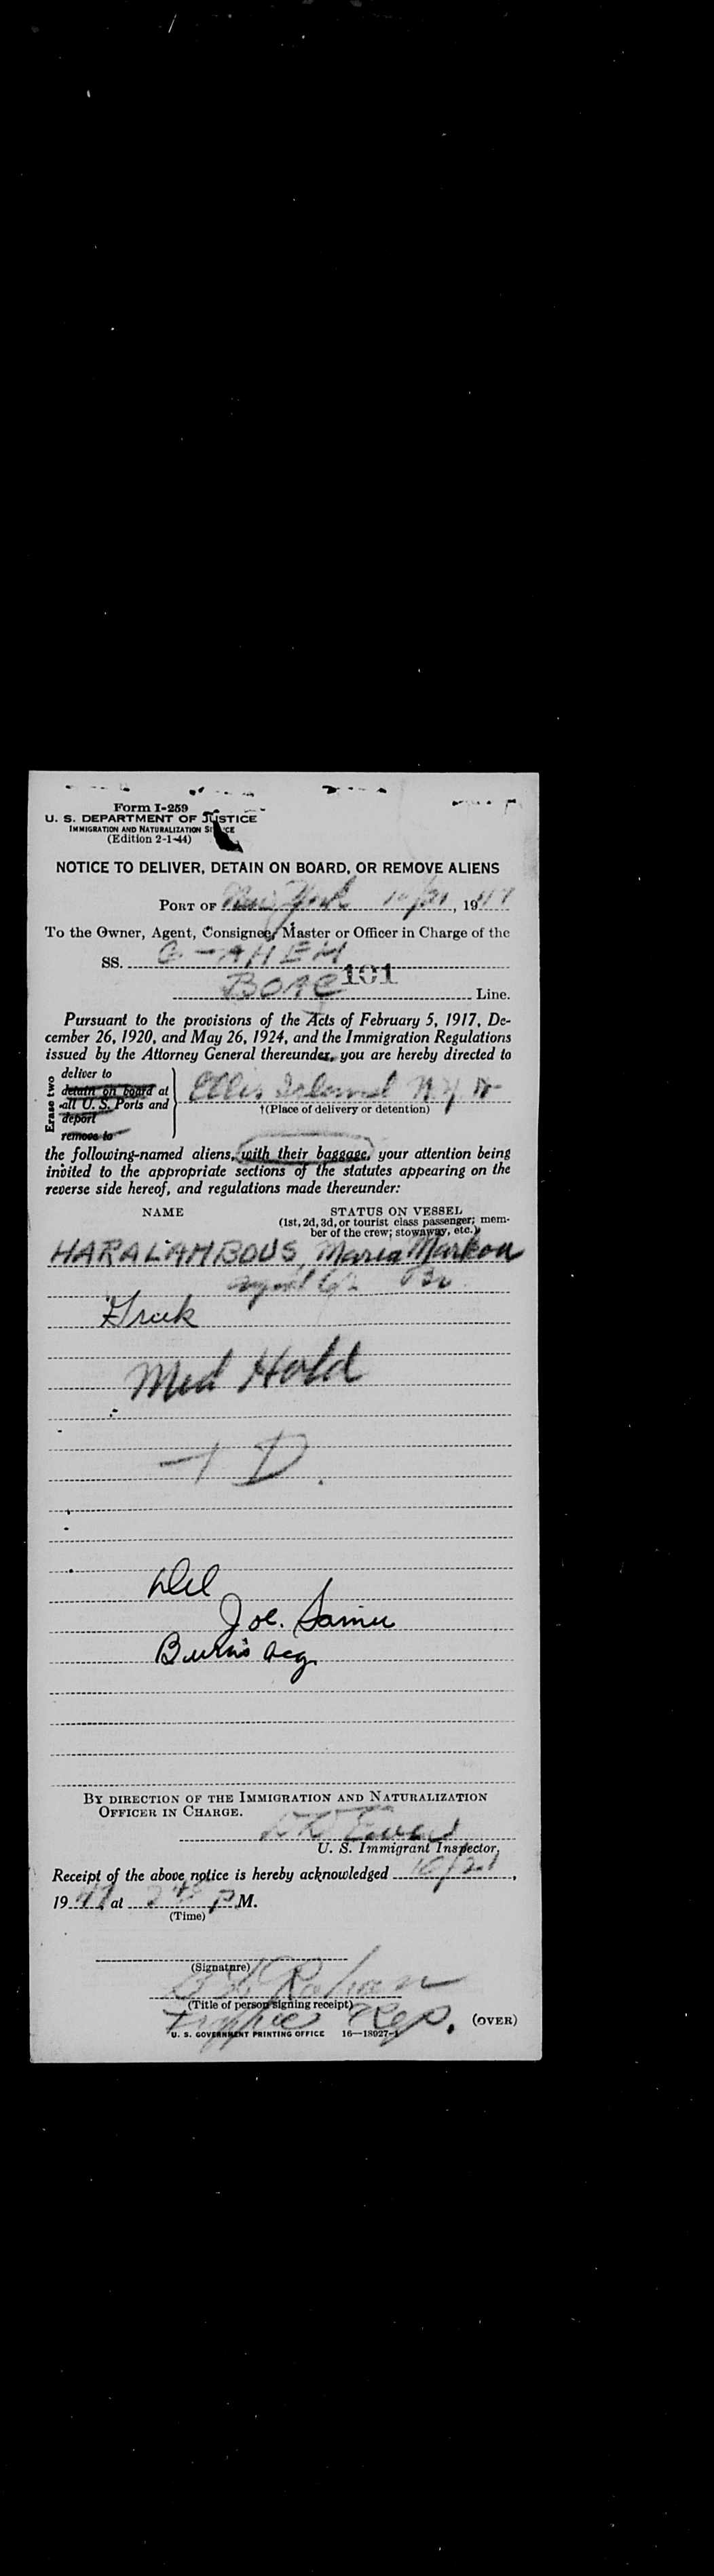 Form I-259
U. S. DEPARTMENT OF JUSTICE
IMMIGRATION AND NATURALIZATION SERVICE
(Edition 2-1-44)
NOTICE TO DELIVER, DETAIN ON BOARD, OR REMOVE ALIENS
PORT OF New York 10/21, 1947
To the Owner, Agent, Consignee, Master or Officer in Charge of the
SS. G-AHEM
BOAC 101 Line.
Pursuant to the provisions of the Acts of February 5, 1917, De-
cember 26, 1920, and May 26, 1924, and the Immigration Regulations
issued by the Attorney General thereunder, you are hereby directed to
Erase two
deliver to
detain on board at
all U. S. Ports and
deport
remove to
Ellis Island N.Y.
†(Place of delivery or detention)
the following-named aliens, with their baggage, your attention being
invited to the appropriate sections of the statutes appearing on the
reverse side hereof, and regulations made thereunder:
NAME STATUS ON VESSEL
(1st, 2d, 3d, or tourist class passenger; mem-
ber of the crew; stowaway, etc.)
HARALAMBOUS, Maria Markou
aged 62 Br
Greek
Med Hold
T D.
Del
Joe.
Burns Acy
BY DIRECTION OF THE IMMIGRATION AND NATURALIZATION
OFFICER IN CHARGE.
U. S. Immigrant Inspector.
Receipt of the above notice is hereby acknowledged 10/21,
1947 at 2 P M.
(Time)
(Signature)
(Title of person signing receipt)
Traffic Rep.
(OVER)
U. S. GOVERNMENT PRINTING OFFICE 16—18027-1